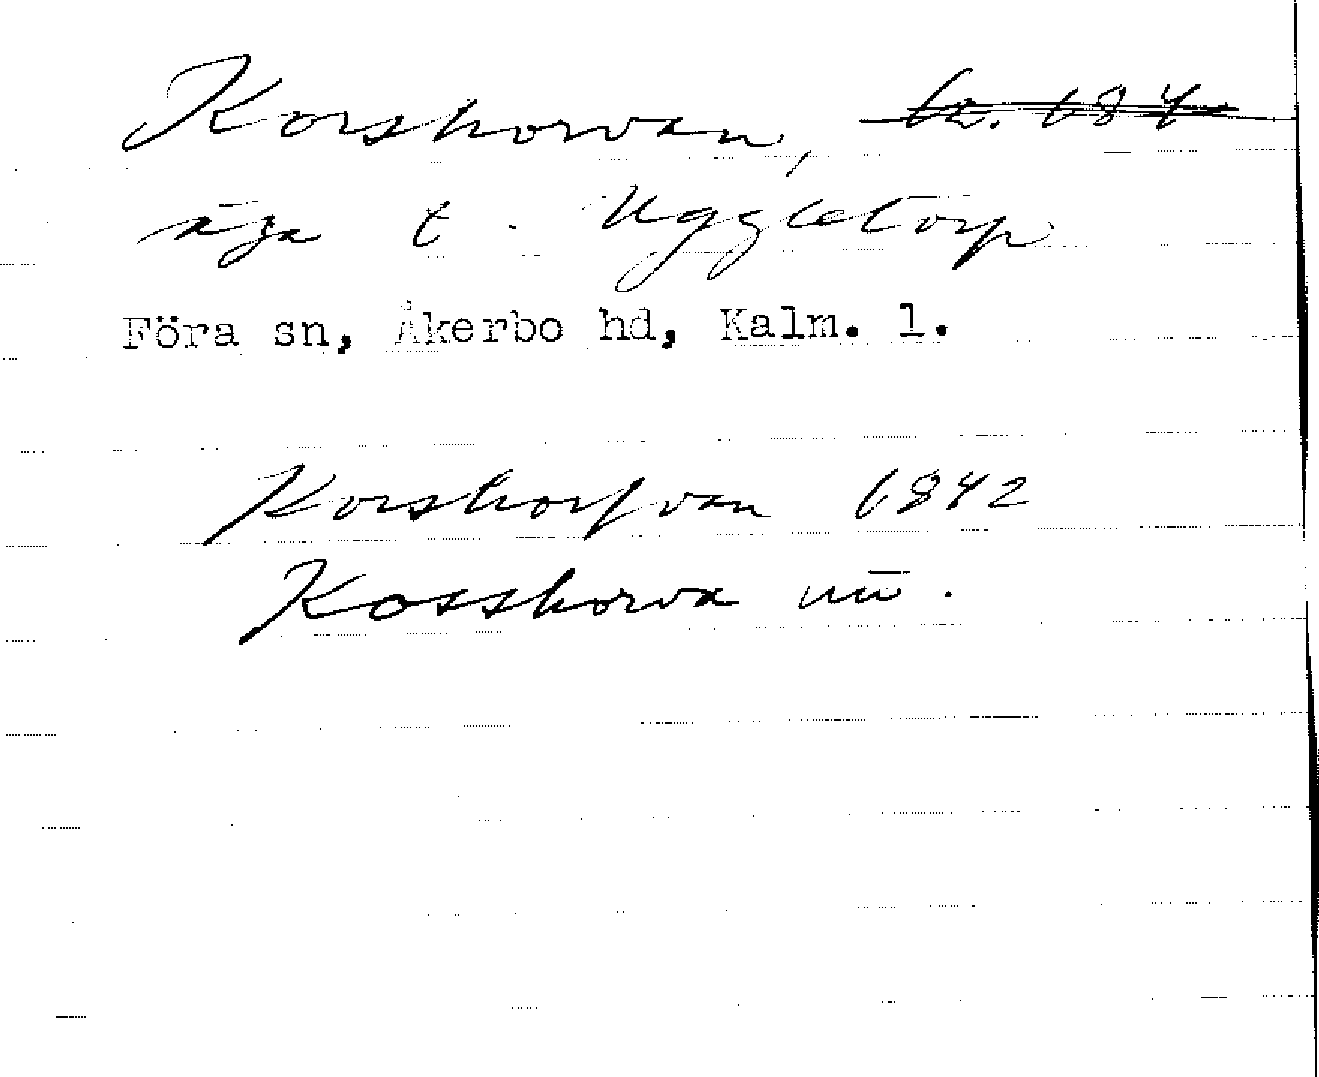 Korshorvan,
äga t. Uggletorp
Föra sn, Åkerbo hd, Kalm. l.
Korshorfvan 1842
Kosshorva nu.